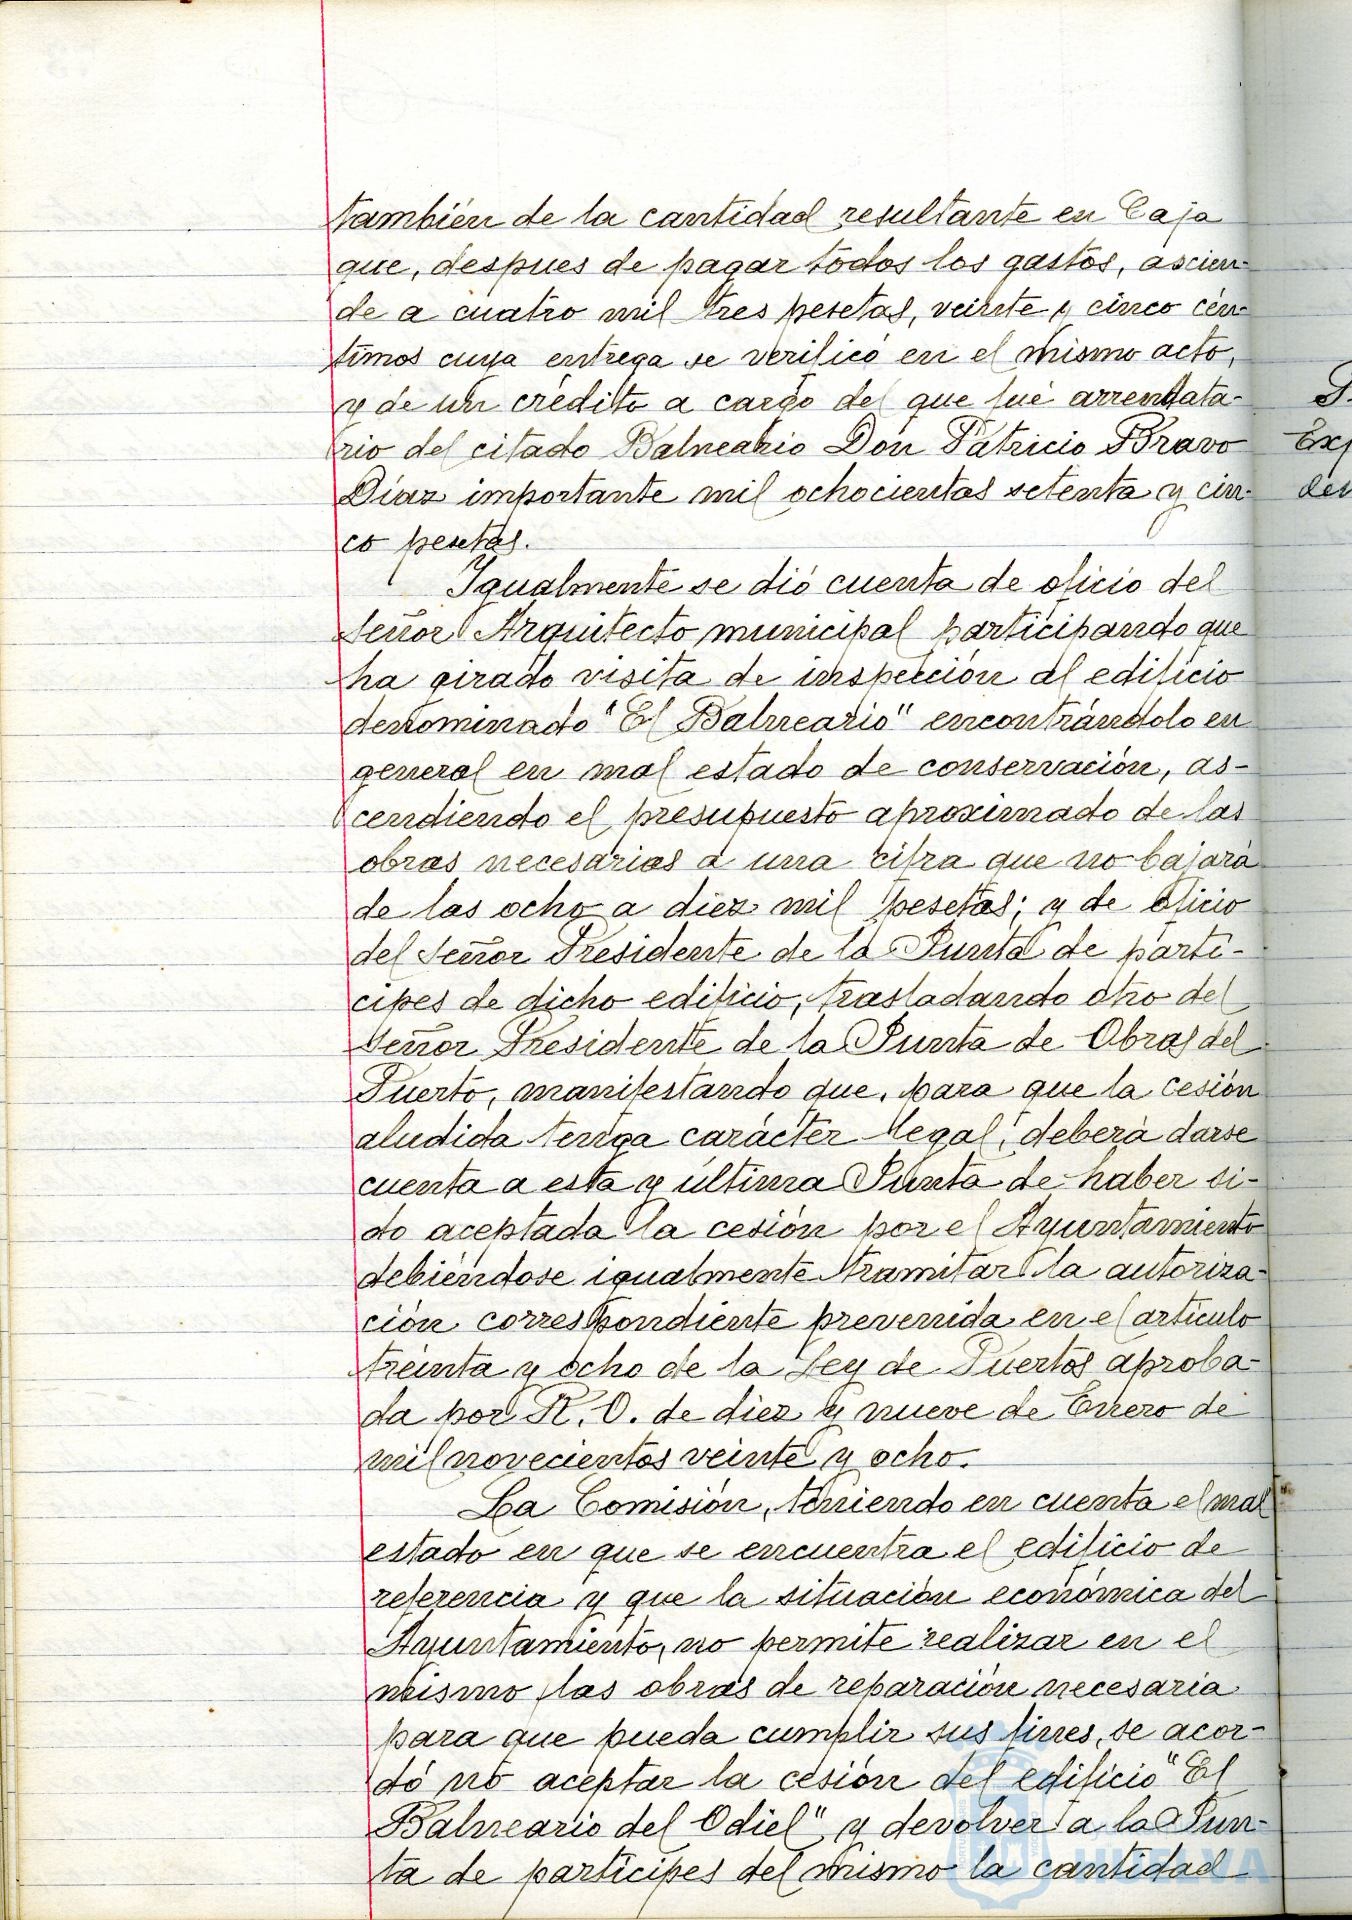 también de la cantidad resultante en Caja
que, despues de pagar todos los gastos, ascien-
de a cuatro mil tres pesetas, veinte y cinco cén-
timos cuya entrega se verificó en el mismo acto,
y de un crédito a cargo del que fué arrendata-
rio del citado Balneario Don Patricio Bravo
Díaz importante mil ochocientas setenta y cin-
co pesetas.
Igualmente se dió cuenta de oficio del
Señor Arquitecto municipal participando que
ha girado visita de inspección al edificio
denominado "El Balneario" encontrándolo en
general en mal estado de conservación, as-
cendiendo el presupuesto aproximado de las
obras necesarias a una cifra que no bajará
de las ocho a diez mil pesetas; y de oficio
del Señor Presidente de la Junta de partí-
cipes de dicho edificio, trasladando otro del
Señor Presidente de la Junta de Obras del
Puerto, manifestando que, para que la cesión
aludida tenga carácter legal, deberá darse
cuenta a esta y última Junta de haber si-
do aceptada la cesión por el Ayuntamiento
debiéndose igualmente tramitar la autoriza-
ción correspondiente prevenida en el artículo
treinta y ocho de la Ley de Puertos aproba-
da por R. O. de diez y nueve de Enero de
mil novecientos veinte y ocho.
La Comisión, teniendo en cuenta el mal
estado en que se encuentra el edificio de
referencia y que la situación económica del
Ayuntamiento, no permite realizar en el
mismo las obras de reparación necesaria
para que pueda cumplir sus fines, se acor-
dó no aceptar la cesión del edificio "El
Balneario del Odiel" y devolver a la Jun-
ta de partícipes del mismo la cantidad
HUELVA